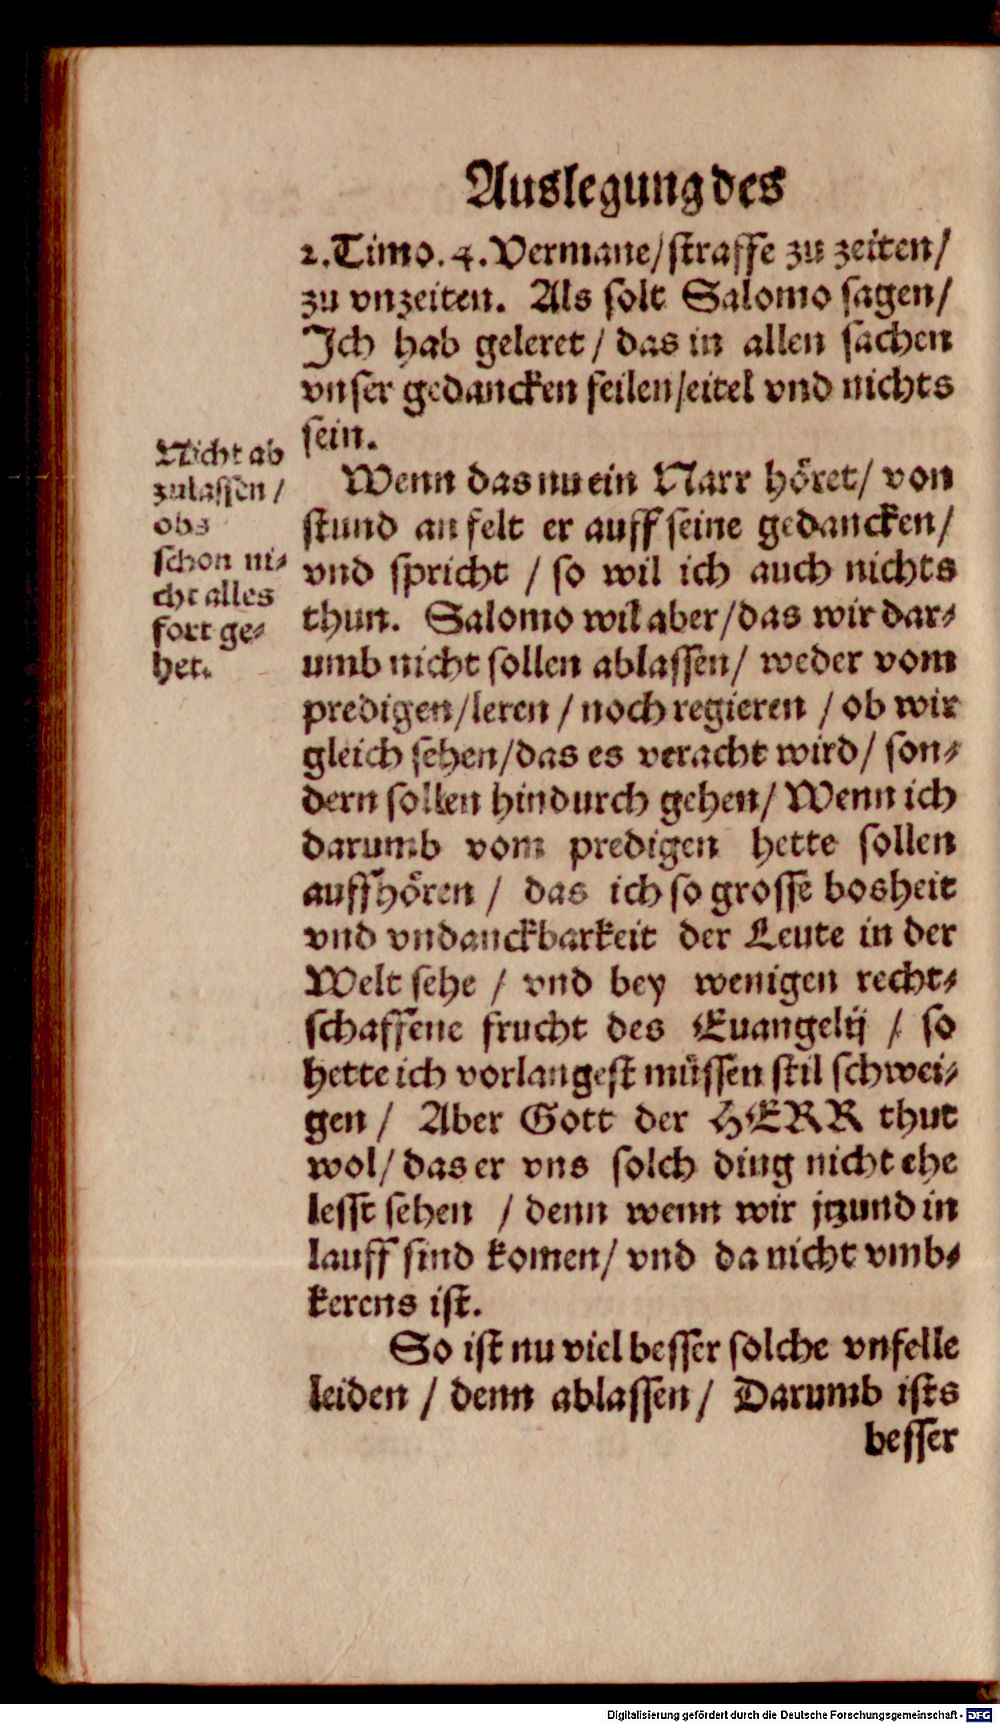 Auslegung des
2. Timo. 4. Vermane/ straffe zu zeiten/
zu vnzeiten. Als solt Salomo sagen/
Ich hab geleret / das in allen sachen
vnser gedancken feilen/eitel vnd nichts
sein.
Nicht ab
zulassen /
obs
schon ni⸗
cht alles
fort ge⸗
het.
Wenn das nu ein Narr höret/ von
stund an felt er auff seine gedancken/
vnd spricht / so wil ich auch nichts
thun. Salomo wil aber/das wir dar⸗
umb nicht sollen ablassen/ weder vom
predigen/leren / noch regieren / ob wir
gleich sehen/das es veracht wird/ son⸗
dern sollen hindurch gehen/ Wenn ich
darumb vom predigen hette sollen
auffhören / das ich so grosse bosheit
vnd vndanckbarkeit der Leute in der
Welt sehe / vnd bey wenigen recht⸗
schaffene frucht des Euangelij / so
hette ich vorlangest müssen stil schwei⸗
gen / Aber Gott der HERR thut
wol/ das er vns solch ding nicht ehe
lesst sehen / denn wenn wir jtzund in
lauff sind komen/ vnd da nicht vmb⸗
kerens ist.
So ist nu viel besser solche vnfelle
leiden / denn ablassen/ Darumb ists
besser
Digitalisierung gefördert durch die Deutsche Forschungsgemeinschaft - DFG